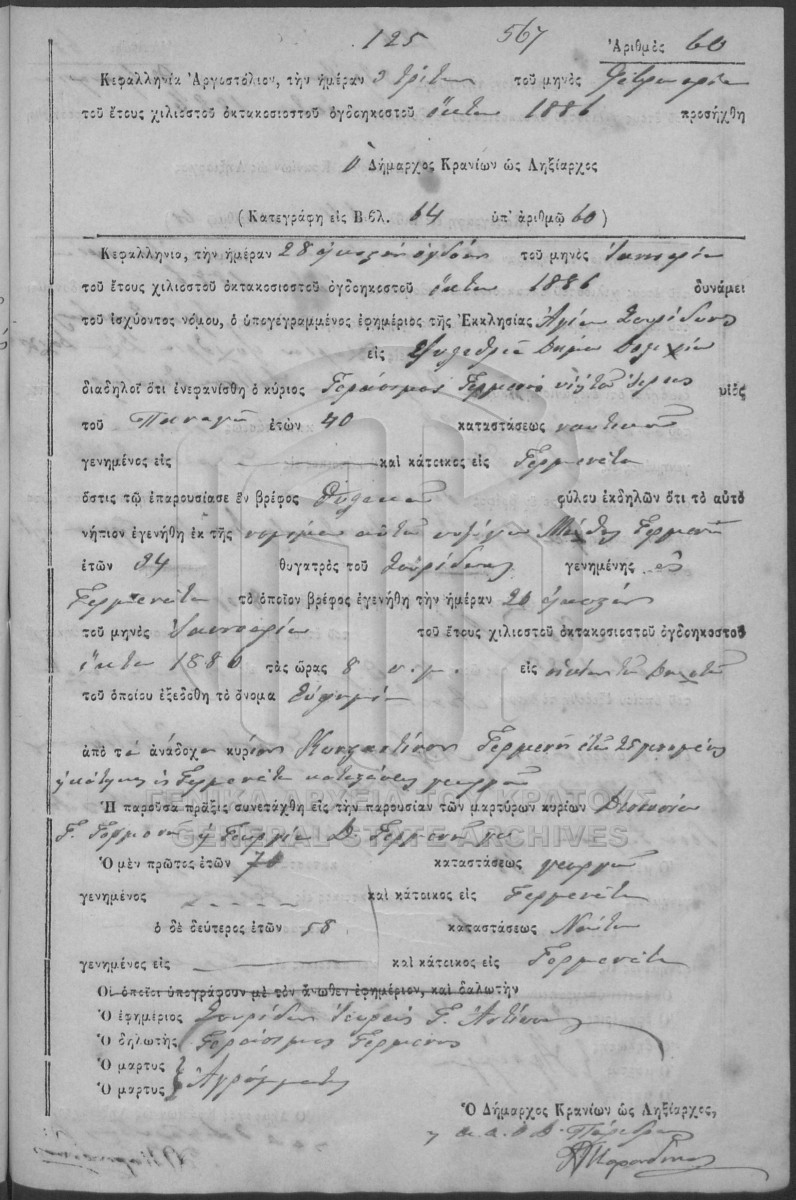 125 567 Ἀριθμὸς 60
Κεφαλληνία Ἀργοστόλιον, τὴν ἡμέραν 3 τρίτην τοῦ μηνὸς Φεβρουαρίου
τοῦ ἔτους χιλιοστοῦ ὀκτακοσιοστοῦ ὀγδοηκοστοῦ ἕκτου 1886 προσήχθη
Ὁ Δήμαρχος Κρανίων ὡς Ληξίαρχος
(Κατεγράφη εἰς Βιβλ. 64 ὑπ' ἀριθμῷ 60)
Κεφαλληνία, τὴν ἡμέραν 28 εἰκοστὴν ὀγδόην τοῦ μηνὸς Ἰανουαρίου
τοῦ ἔτους χιλιοστοῦ ὀκτακοσιοστοῦ ὀγδοηκοστοῦ ἕκτου 1886 δυνάμει
τοῦ ἰσχύοντος νόμου, ὁ ὑπογεγραμμένος ἐφημέριος τῆς Ἐκκλησίας Ἁγίου Σπυρίδωνος
εἰς
διαδηλοῖ ὅτι ἐνεφανίσθη ὁ κύριος Γεράσιμος Γερμενῆς υἱὸς
τοῦ Παναγῆ ἐτῶν 40 καταστάσεως ναυτικοῦ
γενημένος εἰς καὶ κάτοικος εἰς Γερμενάτα
ὅστις τῷ ἐπαρουσίασε ἓν βρέφος θηλυκοῦ φύλου ἐκδηλῶν ὅτι τὸ αὐτὸ
νήπιον ἐγενήθη ἐκ τῆς νομίμου αὐτοῦ συζύγου Γερμενῆ
ἐτῶν 34 θυγατρὸς τοῦ Σπυρίδωνος γενημένης εἰς
Γερμενάτα τὸ ὁποῖον βρέφος ἐγενήθη τὴν ἡμέραν 20 εἰκοστὴν
τοῦ μηνὸς Ἰανουαρίου τοῦ ἔτους χιλιοστοῦ ὀκτακοσιοστοῦ ὀγδοηκοστοῦ
ἕκτου 1886 τὰς ὥρας 8 π.μ. εἰς
τοῦ ὁποίου ἐξεδόθη τὸ ὄνομα Εὐφημία
ἀπὸ τὸ ἀνάδοχον κύριον Κωνσταντῖνον Γερμενῆ ἐτῶν 25 γενημένος
κάτοικος εἰς Γερμενάτα καταστάσεως γεωργοῦ
ΓΕΝΙΚΑ ΑΡΧΕΙΑ ΤΟΥ ΚΡΑΤΟΥΣ
Ἡ παροῦσα πρᾶξις συνετάχθη εἰς τὴν παρουσίαν τῶν μαρτύρων κυρίων Διονυσίου
Γ. Γερμενῆ Γεωργίου Δ. Γερμενῆ
GENERAL STATE ARCHIVES
Ὁ μὲν πρῶτος ἐτῶν 70 καταστάσεως γεωργοῦ
γενημένος καὶ κάτοικος εἰς Γερμενάτα
ὁ δὲ δεύτερος ἐτῶν 58 καταστάσεως Ναύτου
γενημένος εἰς καὶ κάτοικος εἰς Γερμενάτα
Οἱ ὁποῖοι ὑπογράφουν μὲ τὸν ἄνωθεν ἐφημέριον, καὶ δηλωτὴν
Ὁ ἐφημέριος Σπυρίδων Ἱερεὺς Γ.
Ὁ δηλωτὴς Γεράσιμος Γερμενῆς
Ὁ μαρτυς
Ὁ μαρτυς Ἀγράμματοι
Ὁ Δήμαρχος Κρανίων ὡς Ληξίαρχος,